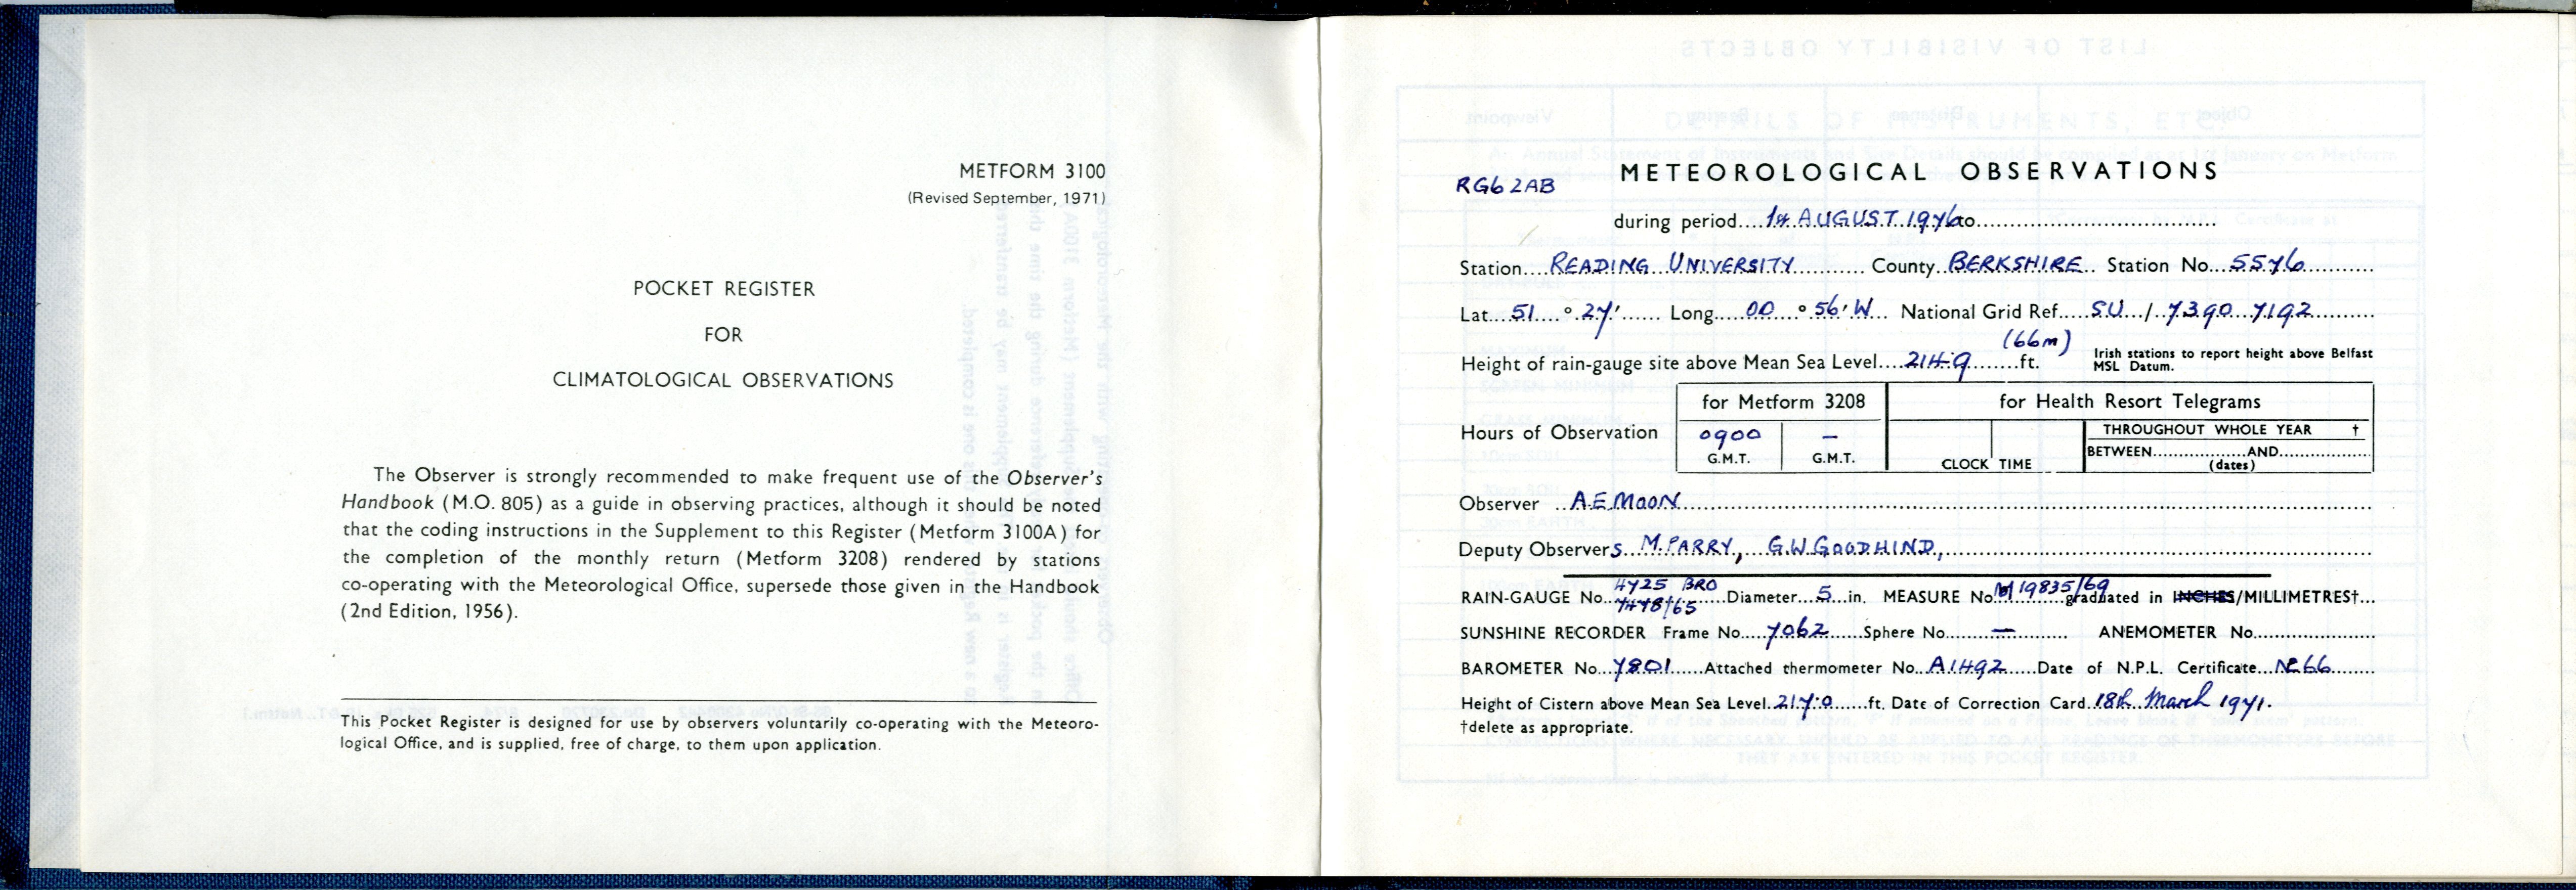 METFORM 3100
(Revised September, 1971)
POCKET REGISTER
FOR
CLIMATOLOGICAL OBSERVATIONS
The Observer is strongly recommended to make frequent use of the Observer's
Handbook (M.O. 805) as a guide in observing practices, although it should be noted
that the coding instructions in the Supplement to this Register (Metform 3100A) for
the completion of the monthly return (Metform 3208) rendered by stations
co-operating with the Meteorological Office, supersede those given in the Handbook
(2nd Edition, 1956).
This Pocket Register is designed for use by observers voluntarily co-operating with the Meteoro-
logical Office, and is supplied, free of charge, to them upon application.
METEOROLOGICAL OBSERVATIONS
RG6 2AB
during period....1st AUGUST 1976 to....
Station....READING UNIVERSITY.... County..BERKSHIRE.. Station No...5576....
Lat....51....°.27'...... Long.....00....°56'W... National Grid Ref.....SU.../..7390..7192....
(66m)
Height of rain-gauge site above Mean Sea Level....214.9......ft. Irish stations to report height above Belfast
MSL Datum.
for Metform 3208 for Health Resort Telegrams
Hours of Observation 0900 – THROUGHOUT WHOLE YEAR †
G.M.T. G.M.T. CLOCK TIME BETWEEN................AND................
(dates)
Observer ..A.E MOON....
Deputy Observers...M.PARRY, G.W.GOODHIND,....
4725 BRO M19835/69
RAIN-GAUGE No...7478/65...Diameter...5...in. MEASURE No..........graduated in INCHES/MILLIMETRES†...
SUNSHINE RECORDER Frame No....7062......Sphere No......—........ ANEMOMETER No....................
BAROMETER No...7801......Attached thermometer No...A1492.....Date of N.P.L. Certificate...66.......
Height of Cistern above Mean Sea Level.217.0......ft. Date of Correction Card..18th March 1971.
†delete as appropriate.